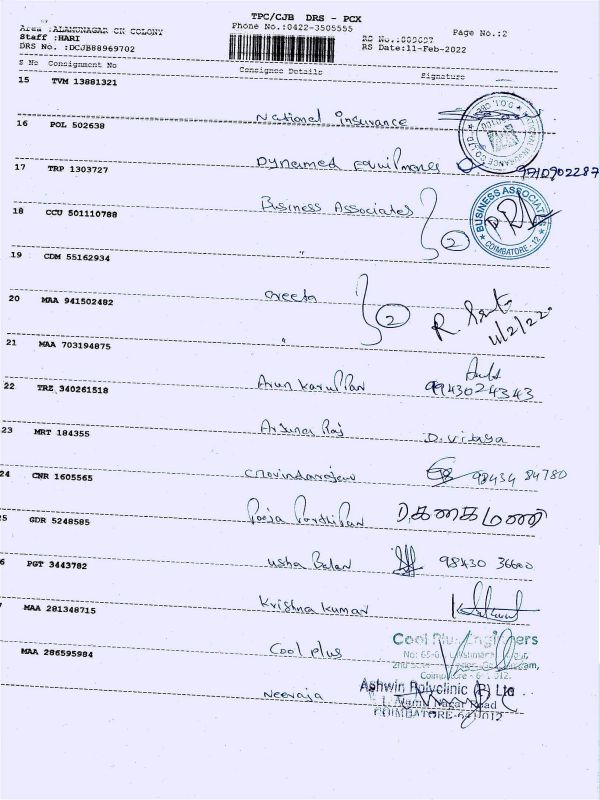 TPC/CJB DRS - PCX
Area :ALAMUNAGAR CK COLONY
Phone No.:0422-3505555
Page No.:2
Staff :HARI
DRS No. :DCJB88969702
RS Date:11-Feb-2022
S No Consignment No Consignee Details Signature
15 TVM 13881321
National Insurance
16 POL 502638
Dynamed
9710902287
17 TRP 1303727
Business Associates
BUSINESS ASSOCIATES
COIMBATORE - 12
18 CCU 501110788
" 2
19 CDM 55162934
Geeta
2
20 MAA 941502482
"
11/2/22
21 MAA 703194875
Arun Karuppan
9943024343
22 TRZ 340261518
Arjuna Raj D. Vidhya
23 MRT 184355
Govindarajan 98434 84780
24 CNR 1605565
D. கனகமணி
25 GDR 5248585
Usha Balan 98430 36600
6 PGT 3443782
Krishna Kumar
7 MAA 281348715
Cool plus
Cool Plus Engineers
MAA 286595984
Neeraja
Ashwin Polyclinic (P) Ltd
Road
COIMBATORE-641012